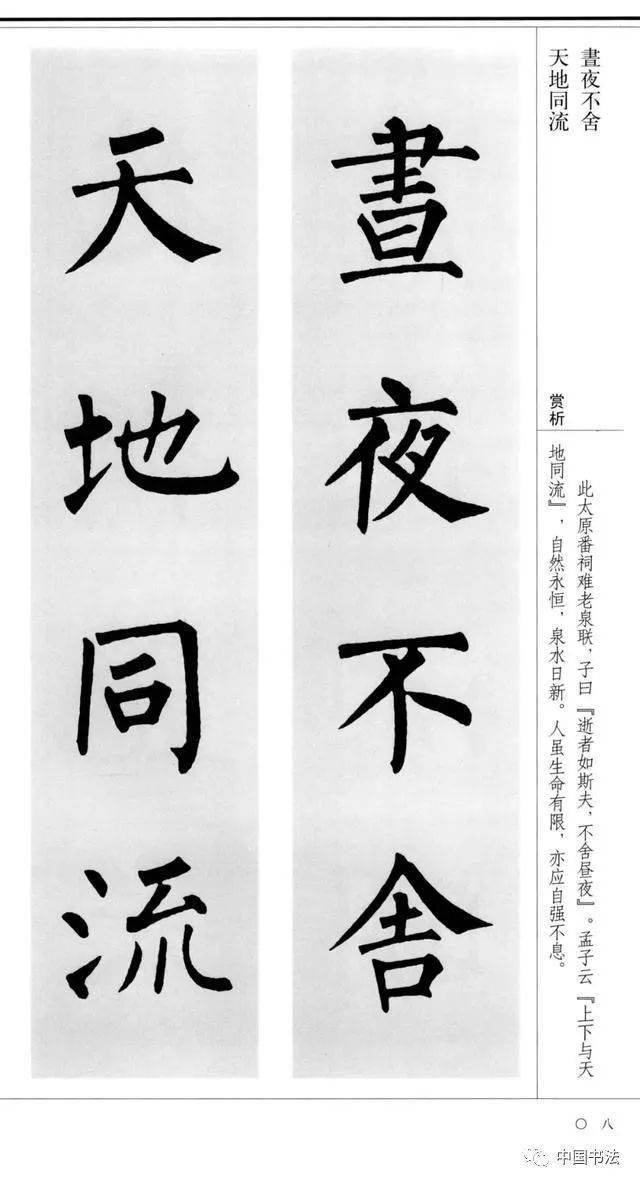 晝夜不舍
天地同流
晝夜不舍
天地同流
赏析
此太原番祠难老泉联，子曰『逝者如斯夫，不舍昼夜』。孟子云『上下与天
地同流』，自然永恒，泉水日新。人虽生命有限，亦应自强不息。
〇八
中国书法